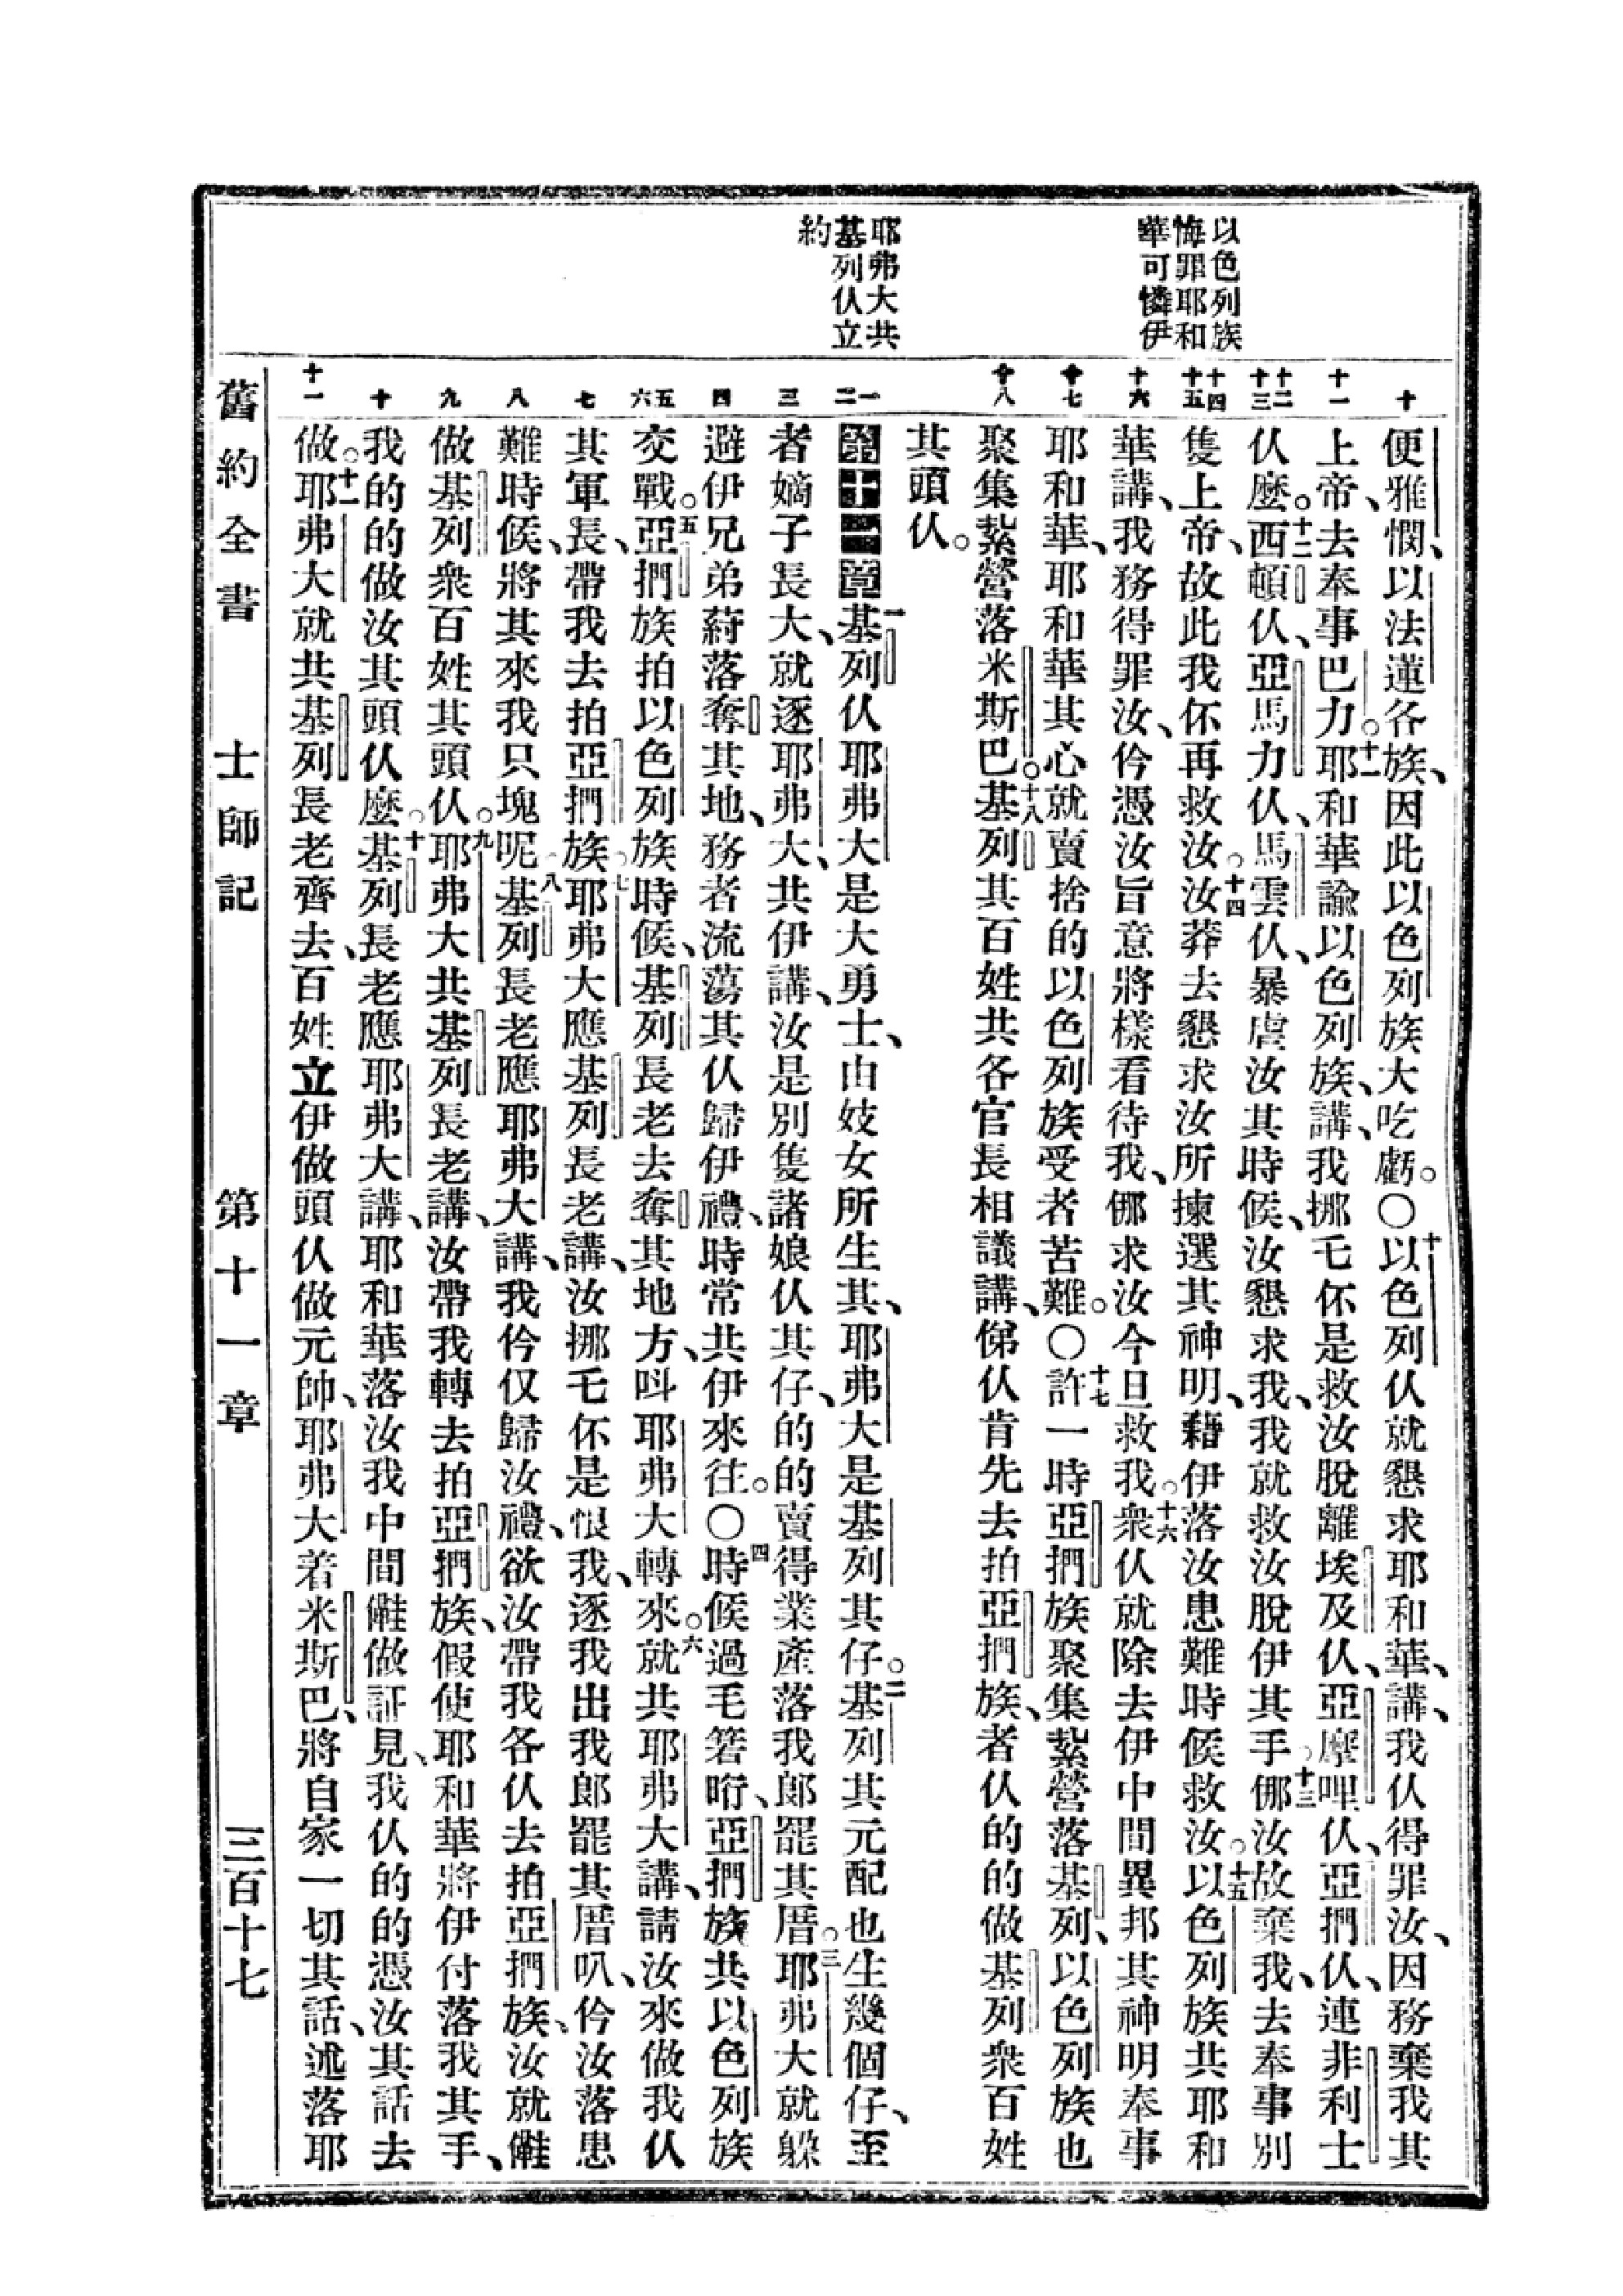 以色列族
悔罪耶和
華可憐伊
耶弗大共
基列仈立
約
十
十一
十二
十三
十四
十五
十六
十七
十八
一
二
三
四
五
六
七
八
九
十
十一
便雅憫、以法蓮各族、因此以色列族大吃虧。〇十以色列仈就懇求耶和華、講、我仈得罪汝、因務棄我其
上帝、去奉事巴力。十一耶和華諭以色列族、講、我挪乇伓是救汝脫離埃及仈、亞摩哩仈、亞捫仈、連非利士
仈麼。十二西頓仈、亞馬力仈、馬雲仈、暴虐汝其時候、汝懇求我、我就救汝脫伊其手。十三𠆧汝故棄我、去奉事別
隻上帝、故此我伓再救汝。十四汝莽去懇求汝所揀選其神明、藉伊落汝患難時候救汝。十五以色列族共耶和
華講、我務得罪汝、仱憑汝旨意將樣看待我、𠆧求汝今旦救我。十六衆仈就除去伊中間異邦其神明奉事
耶和華、耶和華其心就賣捨的以色列族受者苦難。〇十七許一時亞捫族聚集紮營落基列、以色列族也
聚集紮營落米斯巴。十八基列其百姓共各官長相議講、俤仈肯先去拍亞捫族、者仈的的做基列衆百姓
其頭仈。
第十一章一基列仈耶弗大是大勇士、由妓女所生其、耶弗大是基列其仔。二基列其元配也生幾個仔、至
者嫡子長大、就逐耶弗大、共伊講、汝是別隻諸娘仈其仔、的的賣得業產落我郎罷其厝。三耶弗大就躲
避伊兄弟、蒔落奪其地、務者流蕩其仈歸伊禮、時常共伊來往。〇四時候過毛箬晌、亞捫族共以色列族
交戰。五亞捫族拍以色列族時候、基列長老去奪其地方、叫耶弗大轉來。六就共耶弗大講、請汝來做我仈
其軍長、帶我去拍亞捫族。七耶弗大應基列長老講、汝挪乇伓是恨我、逐我出我郎罷其厝叭、仱汝落患
難時候、將其來我只塊呢。八基列長老應耶弗大講、我仱仅歸汝禮、欲汝帶我各仈去拍亞捫族、汝就𠆧
做基列衆百姓其頭仈。九耶弗大共基列長老講、汝帶我轉去拍亞捫族、假使耶和華將伊付落我其手、
我的的做汝其頭仈麼。十基列長老應耶弗大講、耶和華落汝我中間𠆧做証見、我仈的的憑汝其話去
做。十一耶弗大就共基列長老齊去、百姓立伊做頭仈做元帥、耶弗大着米斯巴、將自家一切其話、述落耶
舊約全書　士師記　第十一章　三百十七